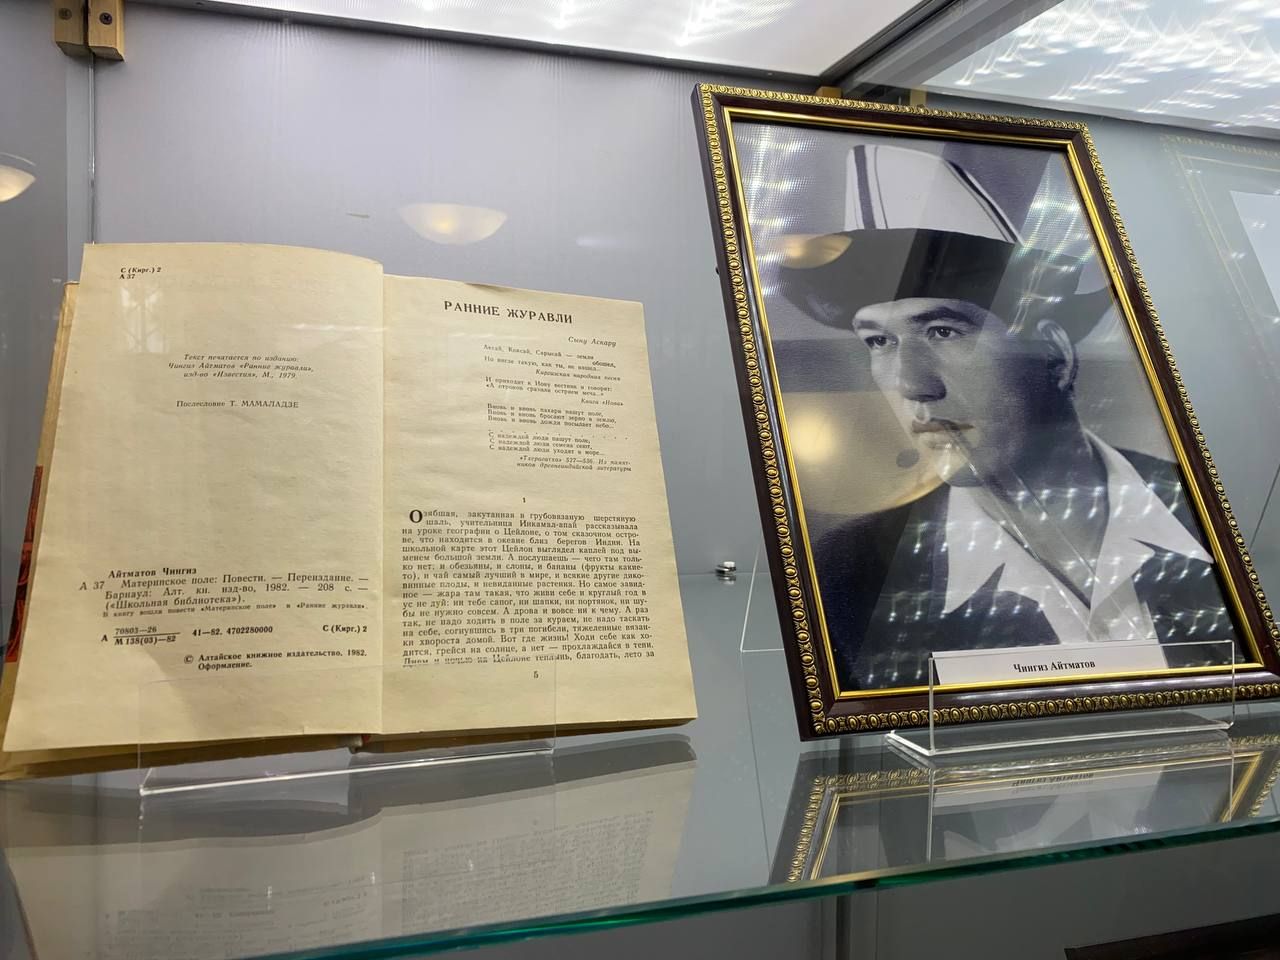 С (Кирг.) 2
А 37
Текст печатается по изданию:
Чингиз Айтматов «Ранние журавли»,
изд-во «Известия», М., 1979.
Послесловие Т. МАМАЛАДЗЕ
Айтматов Чингиз
А 37 Материнское поле: Повести. — Переиздание. —
Барнаул: Алт. кн. изд-во, 1982. — 208 с. —
(«Школьная библиотека»).
В книгу вошли повести «Материнское поле» и «Ранние журавли»
А 70803—26
М 138(03)—82 41—82. 4702280000 С (Кирг.) 2
© Алтайское книжное издательство, 1982.
Оформление.
РАННИЕ ЖУРАВЛИ
Сыну Аскару
Аксай, Коксай, Сарысай — земли
обошел,
Но нигде такую, как ты, не нашел...
Киргизская народная песня
И приходит к Иову вестник и говорит:
«А отроков сразили острием меча...»
Книга «Иова»
Вновь и вновь пахари пашут поле,
Вновь и вновь бросают зерно в землю,
Вновь и вновь дожди посылает небо...
. . . . . . . . . . . . . .
С надеждой люди пашут поле,
С надеждой люди семена сеют,
С надеждой люди уходят в море...
«Тхерагатха» 527—536. Из памят-
ников древнеиндийской литературы
1
Озябшая, закутанная в грубовязаную шерстяную
шаль, учительница Инкамал-апай рассказывала
на уроке географии о Цейлоне, о том сказочном остро-
ве, что находится в океане близ берегов Индии. На
школьной карте этот Цейлон выглядел каплей под вы-
менем большой земли. А послушаешь — чего там толь-
ко нет: и обезьяны, и слоны, и бананы (фрукты какие-
то), и чай самый лучший в мире, и всякие другие дико-
винные плоды, и невиданные растения. Но самое завид-
ное — жара там такая, что живи себе и круглый год в
ус не дуй: ни тебе сапог, ни шапки, ни портянок, ни шу-
бы не нужно совсем. А дрова и вовсе ни к чему. А раз
так, не надо ходить в поле за кураем, не надо таскать
на себе, согнувшись в три погибели, тяжеленные вязан-
ки хвороста домой. Вот где жизнь! Ходи себе как хо-
дится, грейся на солнце, а нет — прохлаждайся в тени.
Днем и ночью на Цейлоне теплынь, благодать, лето за
5
Чингиз Айтматов